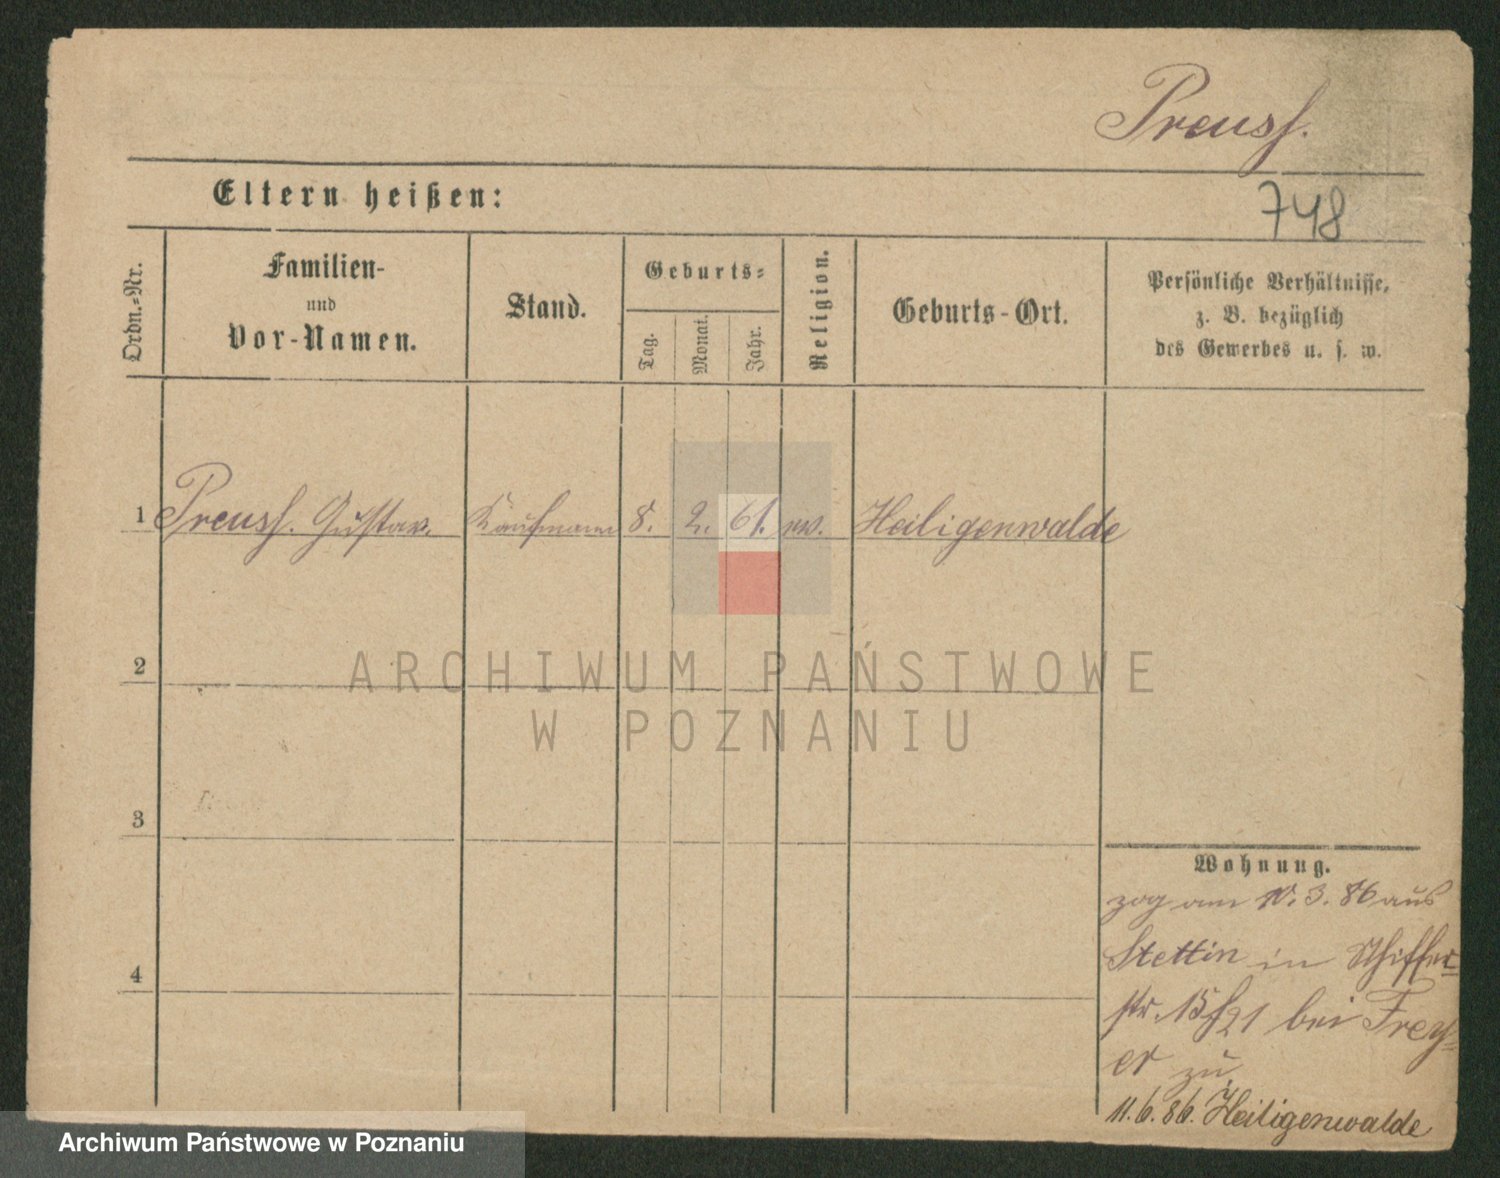 Preuss.
748
Eltern heißen:
Ordn.-Nr.
Familien-
und
Vor-Namen.
Stand.
Geburts-
Tag.
Monat.
Jahr.
Religion.
Geburts-Ort.
Persönliche Verhältnisse,
z. B. bezüglich
des Gewerbes u. s. w.
1 Preuss. Gustav. Kaufmann 8. 2. 61. Heiligenwalde
2
ARCHIWUM PAŃSTWOWE
W POZNANIU
3
4
Wohnung.
zog am 10. 3. 86 aus
Stettin in Schiffer-
str. 15/21 bei Frey-
er zu
11.6.86. Heiligenwalde
Archiwum Państwowe w Poznaniu